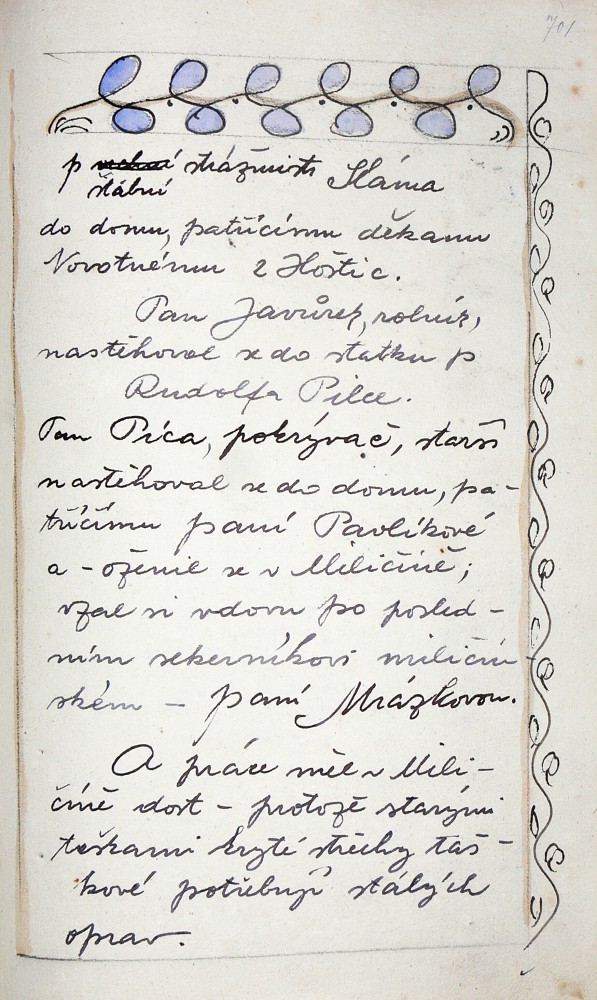 701
p vrchní strážmistr Sláma
štábní
do domu, patřícímu děkanu
Novotnému z Hoštic.
Pan Javůrek, rolník,
nastěhoval se do statku p
Rudolfa Pilce.
Pan Píca, pokrývač, starší
nastěhoval se do domu, pa-
třícímu paní Pavlíkové
a - oženil se v Miličíně;
vzal si vdovu po posled-
ním sekerníkovi miličín
ském - paní Mrázkovou.
A práce měl v Mili-
číně dost - protože starými
taškami kryté střechy taš-
kové potřebují stálých
oprav.